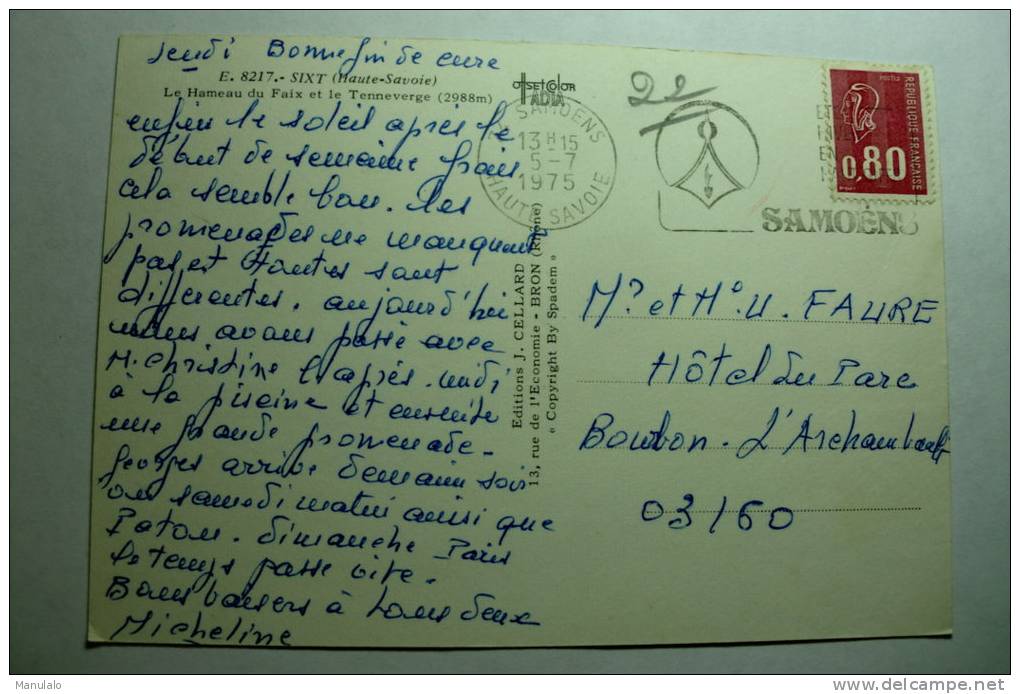 Jeudi Bonne fin de cure
E. 8217.- SIXT (Haute-Savoie)
Le Hameau du Faix et le Tenneverge (2988m)
OFFSETCOLOR
ADIA
enfin le soleil après le
début de semaine frais
cela semble bon. Les
promenades ne manquent
pas et toutes sont
différentes. aujourd'hui
nous avons passé avec
M. Christine l'après-midi
à la piscine et ensuite
une grande promenade.
Georges arrive demain soir
ou samedi matin ainsi que
Patou. Dimanche Paris
le temps passe vite.
Bons baisers à tous deux
Micheline
Editions J. CELLARD
13, rue de l'Economie - BRON (Rhône)
« Copyright By Spadem »
SAMOENS
13H15
5-7
1975
HAUTE SAVOIE
SAMOËNS
POSTES
REPUBLIQUE FRANÇAISE
0,80
Mr et Me U. FAURE
Hôtel du Parc
Bourbon-L'Archambault
03160
Manulalo
delcampe.net